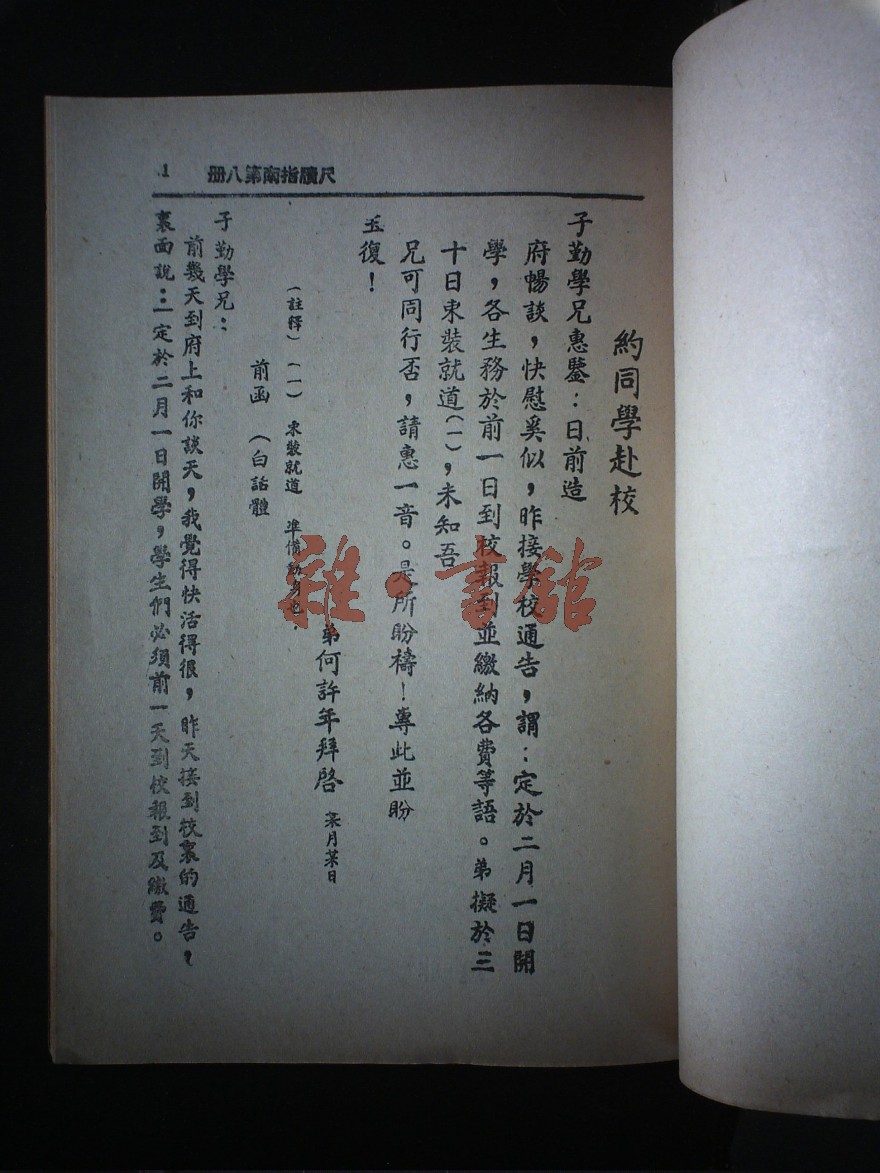 尺牘指南第八册 1
約同學赴校
子勤學兄惠鑒：日前造
府暢談，快慰奚似，昨接學校通告，謂：定於二月一日開
學，各生務於前一日到校報到並繳納各費等語。弟擬於三
十日束裝就道（一），未知吾
兄可同行否，請惠一音。是所盼禱！專此並盼
玉復！
弟何許年拜啓 某月某日
（註釋）（一） 束裝就道 準備動身也。
前函 （白話體
子勤學兄：
前幾天到府上和你談天，我覺得快活得很，昨天接到校裏的通告，
裏面說：一定於二月一日開學，學生們必須前一天到校報到及繳費。
雜·書館